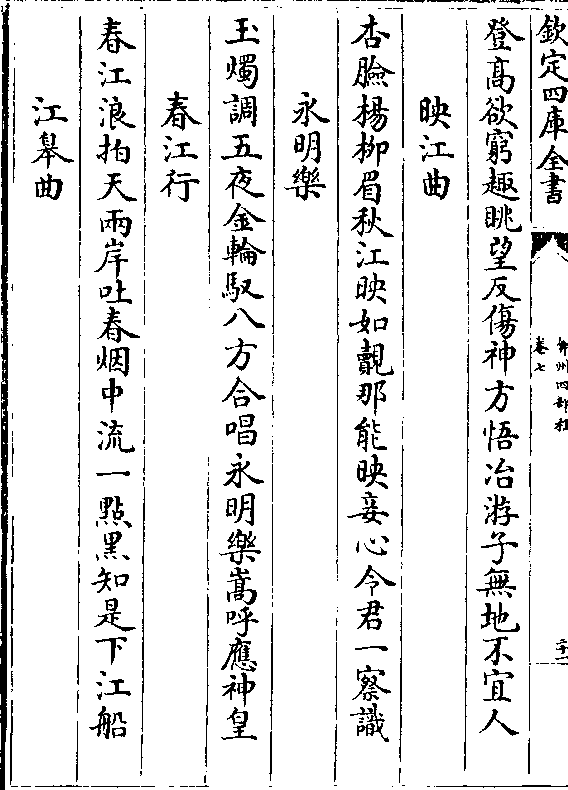 欽定四庫全書
弇州四部稿
卷七
登高欲窮趣眺望反傷神方悟冶游子無地不宜人
映江曲
杏臉楊柳眉秋江映如靚那能映妾心令君一察識
永明樂
玉燭調五夜金輪馭八方合唱永明樂嵩呼應神皇
春江行
春江浪拍天兩岸吐春烟中流一點黑知是下江船
江皋曲